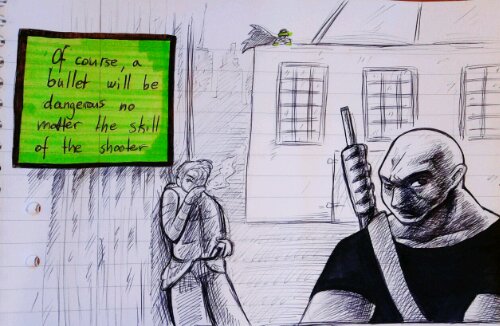 Of course, a
bullet will be
dangerous no
matter the skill
of the shooter